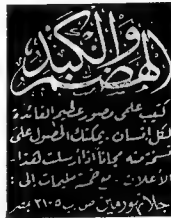 الهضم والكبد
كتيب علمى مصور عظيم الفائدة
لكل إنسان . يمكنك الحصول على
نسخة منه مجاناً إذا أرسلت هذا
الأعلان . مع خمسة مليمات إلى :
جلاجو ماين ص . ب ٢١٠٥ بمصر